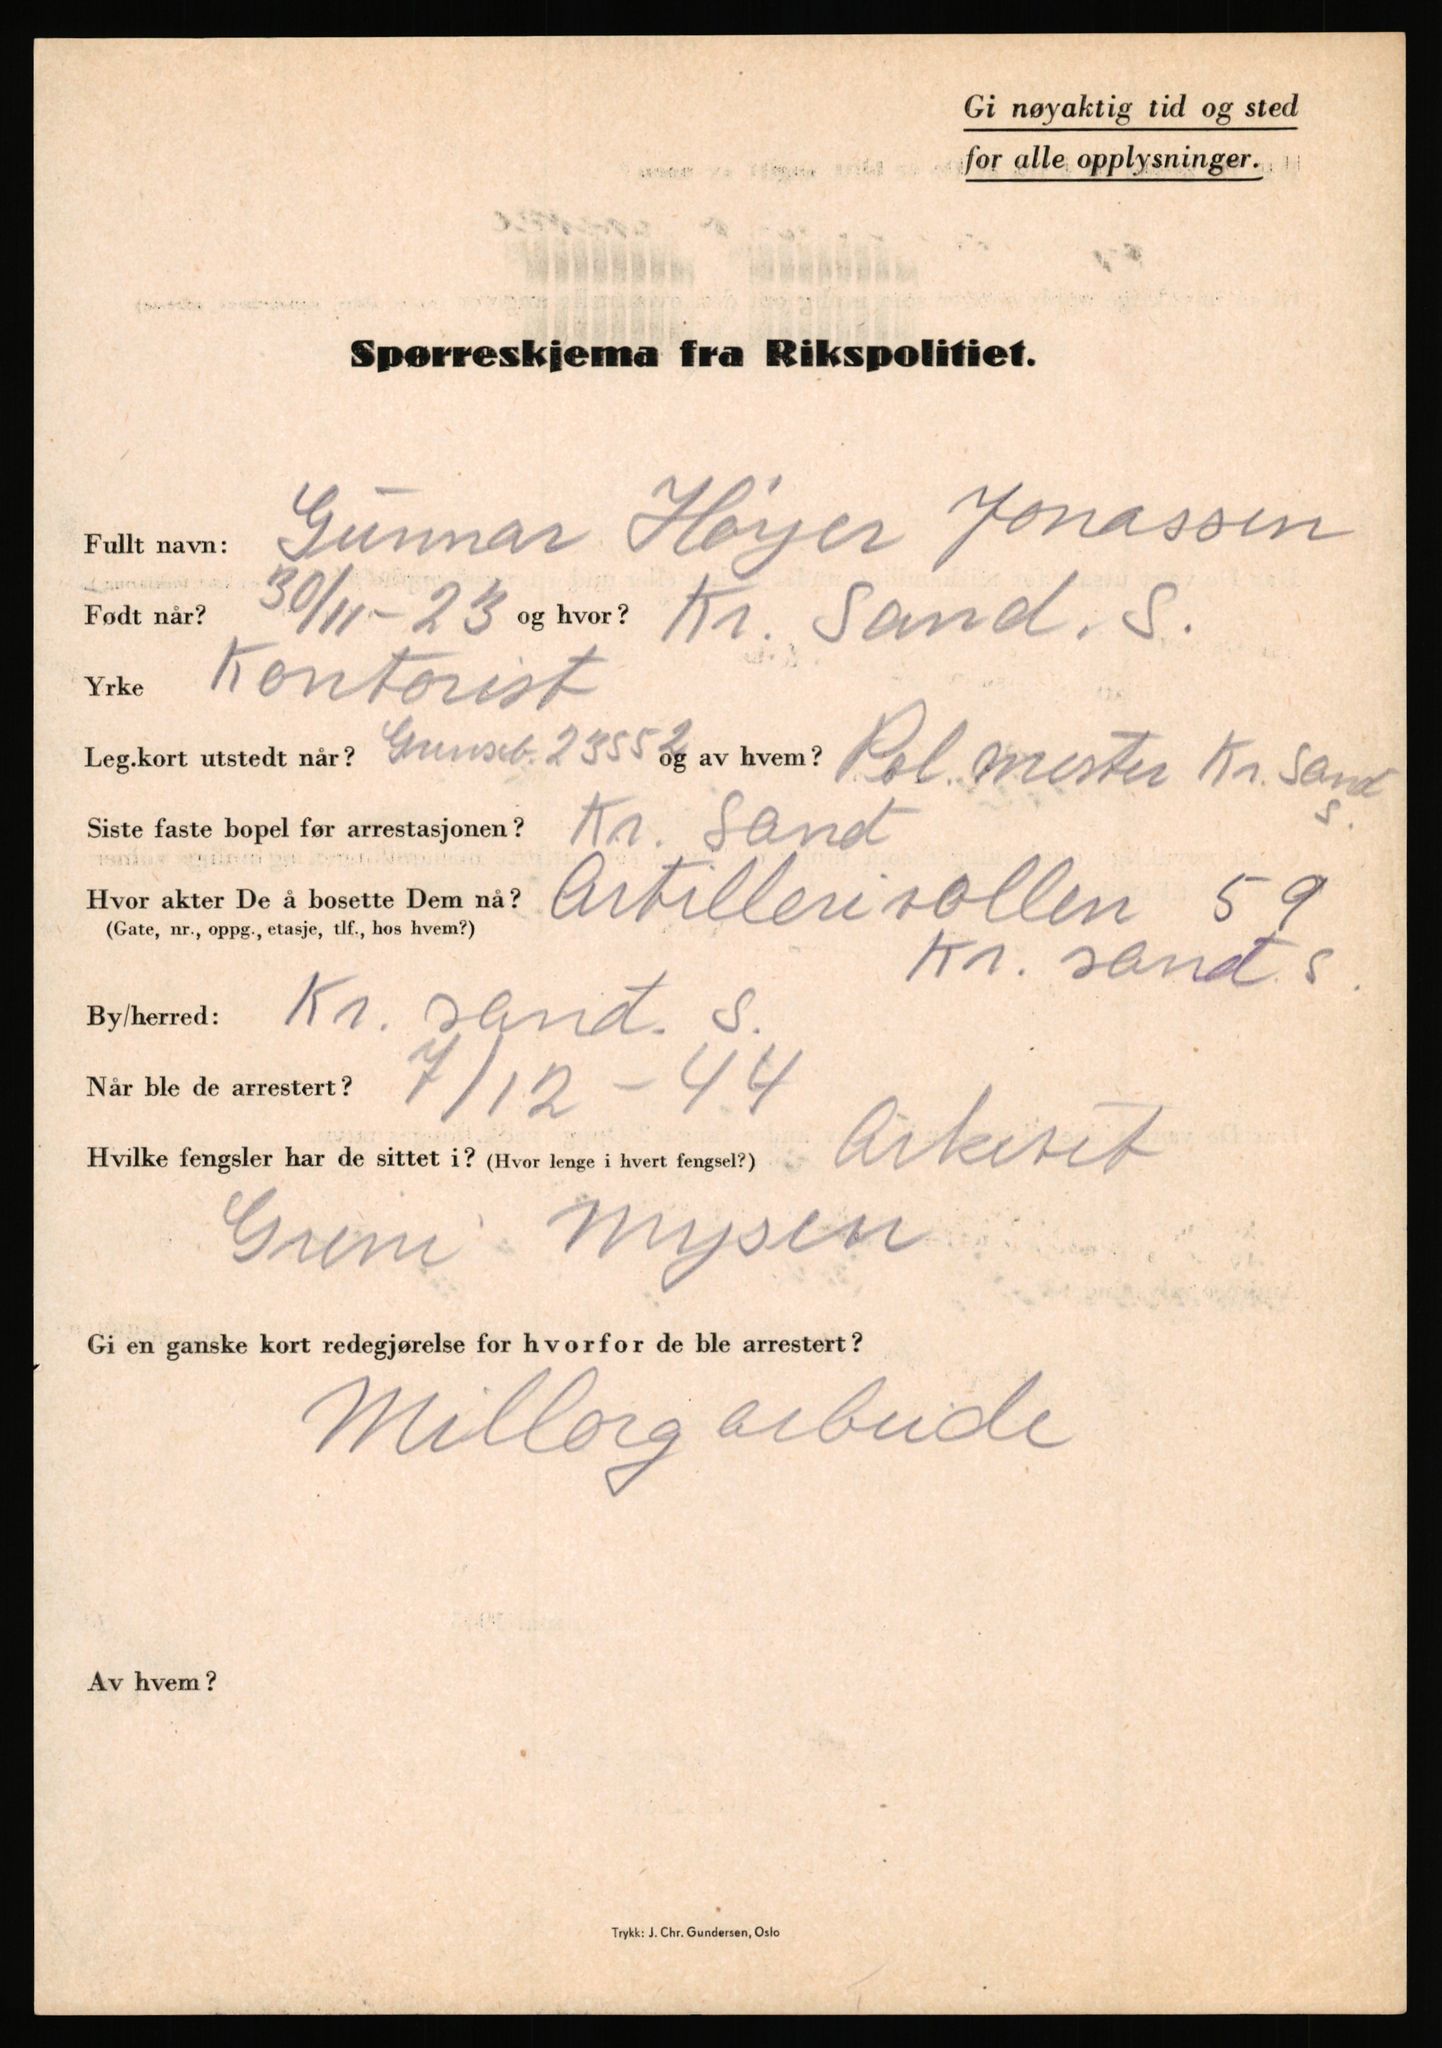 Gi nøyaktig tid og sted
for alle opplysninger.
Spørreskjema fra Rikspolitiet.
Fullt navn: Gunnar Höyer Jonassen
Født når? 30/11-23 og hvor? Kr. Sand. S.
Yrke Kontorist
Leg.kort utstedt når? Grenseb. 23552 og av hvem? Pol. mester Kr. Sand
S.
Siste faste bopel før arrestasjonen? Kr. Sand
Hvor akter De å bosette Dem nå? Artillerivollen 59
(Gate, nr., oppg., etasje, tlf., hos hvem?) Kr. sand. S.
By/herred: Kr. sand. S.
Når ble de arrestert? 7/12-44
Hvilke fengsler har de sittet i? (Hvor lenge i hvert fengsel?) Arkivet
Grini Mysen
Gi en ganske kort redegjørelse for hvorfor de ble arrestert?
Millorg arbeide
Av hvem?
Trykk: J. Chr. Gundersen, Oslo